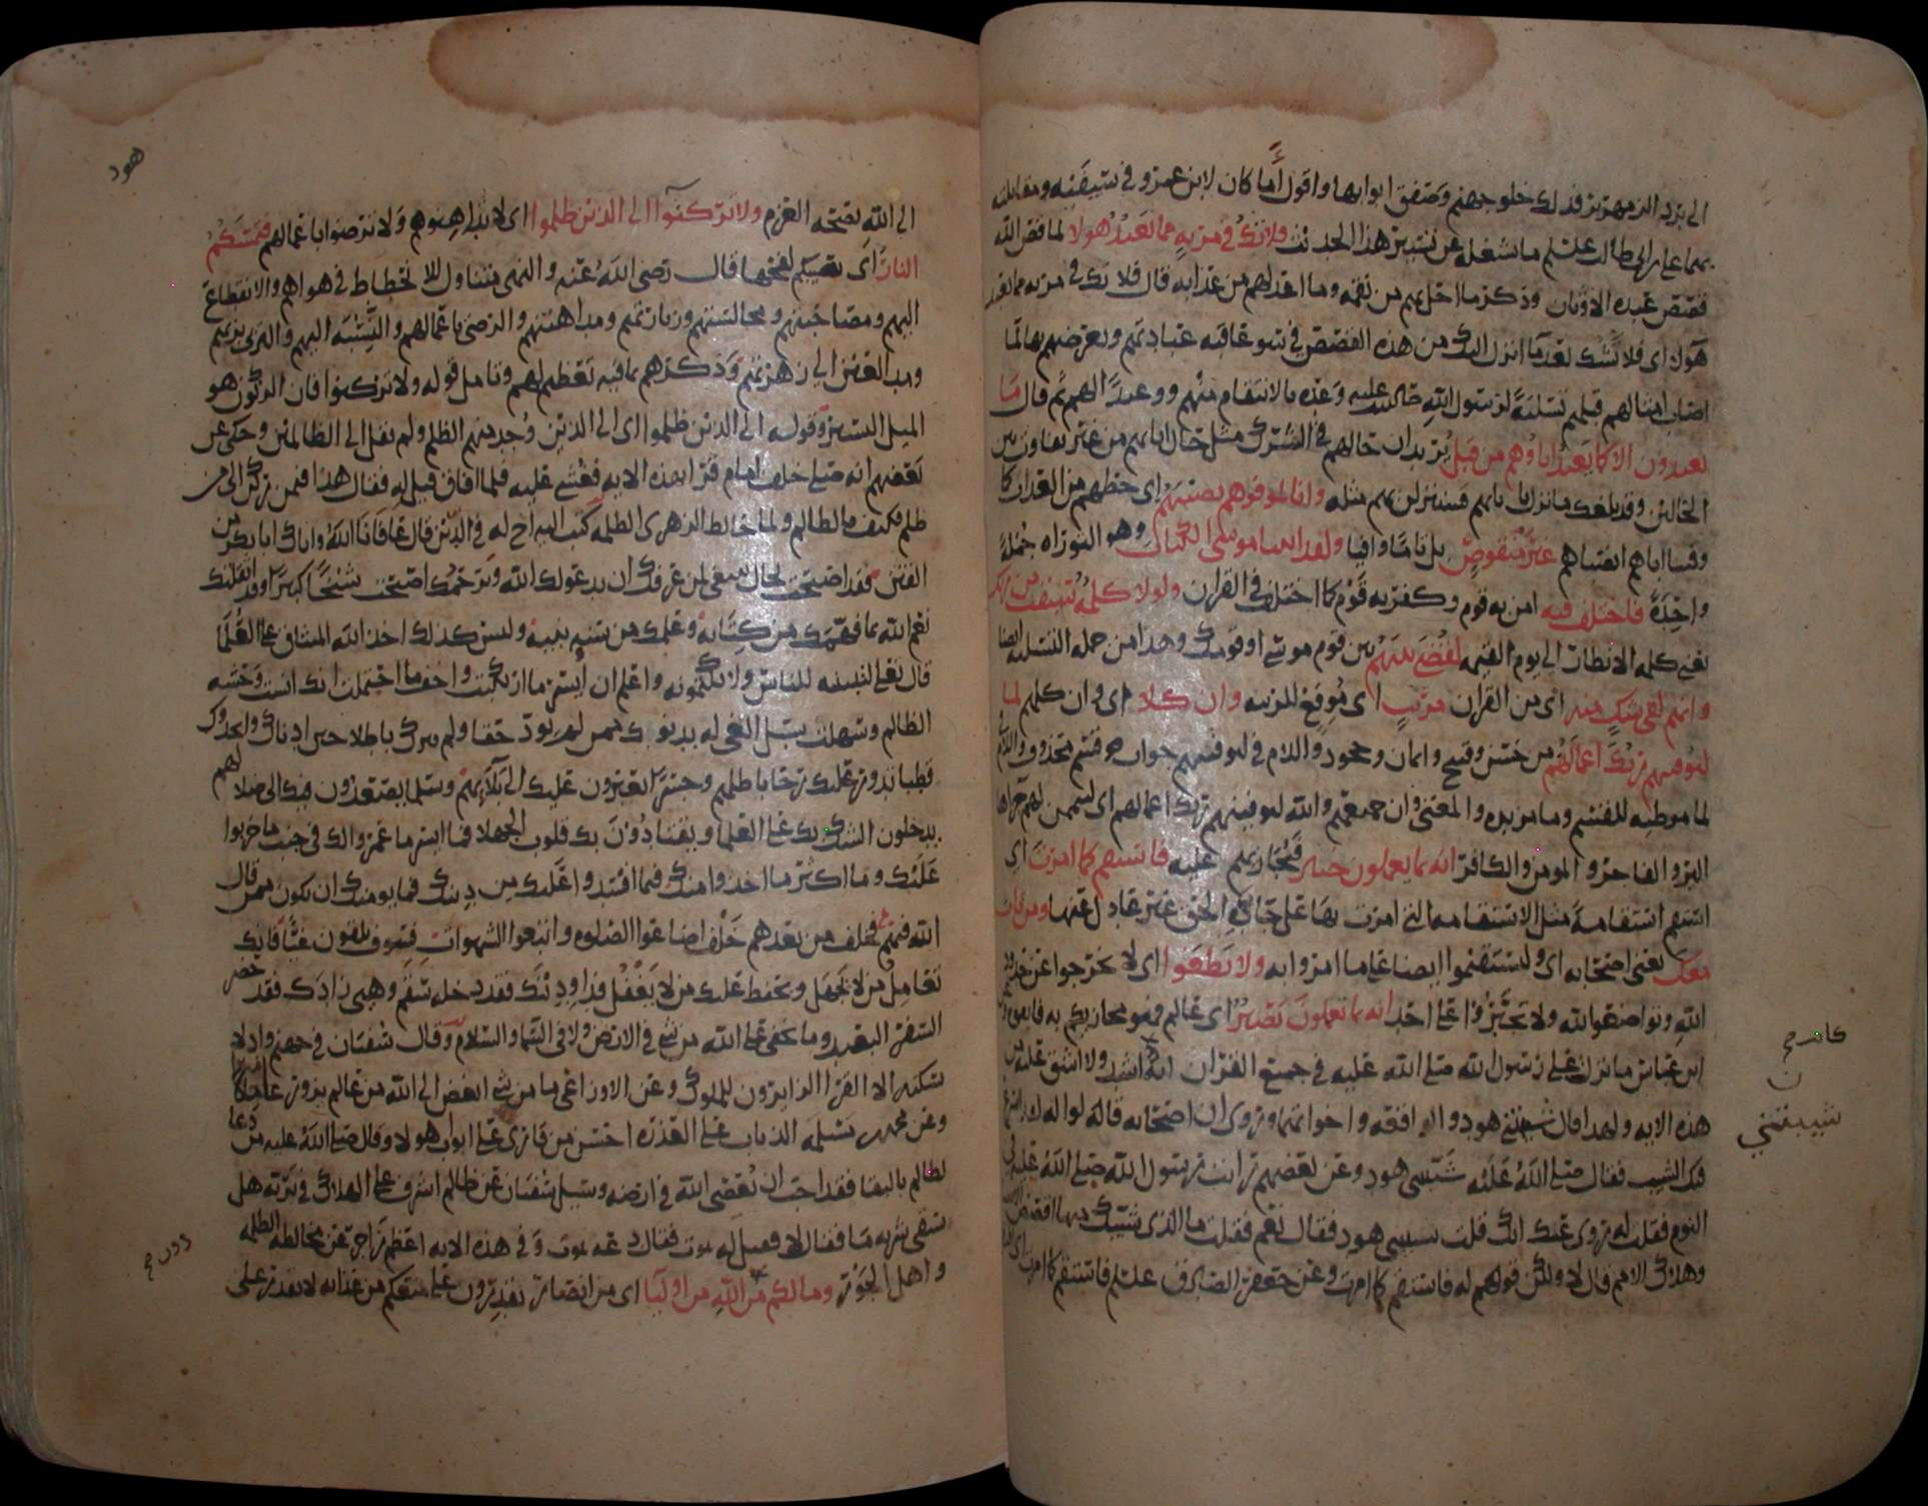 الى برد الزمهرير فذلك خلو جهنم وصفق ابوابها واقول أما كان لابن عمرو في سيفيه ومقاتلته
بهما علي بن ابي طالب عليلم ما يشغله عن تسيير هذا الحديث فلا تك في مرية مما يعبد هولا لما قص الله
قصص عبدة الاوثان وذكر ما احل بهم من نقمه وما اعد لهم من عذابه قال فلا تك في مرية مما يعبد
هولا اى فلا تشك بعد ما انزل اليك من هذه القصص في سو عاقبة عبادتهم وتعرضهم بها لما
اصاب امثالهم قبلهم تسلية لرسول الله صلى الله عليه وعدة بالانتقام منهم ووعيدا لهم ثم قال ما
يعبدون الا كما يعبد اباوهم من قبل يريد ان حالهم في الشرك مثل حال ابايهم من غير تفاوت بين
الحالين وقد بلغك ما نزل بابايهم فسينزلن بهم مثله وانا لموفوهم نصيبهم اى حظهم من العذاب كما
وفينا اباهم انصباهم غير منقوص بل تاما وافيا ولقد اتينا موسى الكتاب وهو التوراه جملة
واحدة فاختلف فيه امن به قوم وكفر به قوم كما اختلف في القران ولولا كلمة سبقت من ربك
يعني كلمه الانظار الى يوم القيمه لقضي بينهم بين قوم موسى او قومك وهذا من جمله التسليه ايضا
وانهم لفي شك منه اى من القران مريب اى موقع للريبه وان كلا اى وان كلهم لما
ليوفينهم ربك اعمالهم من حسن وقبيح وايمان وجحود واللام في ليوفينهم جواب قسم محذوف واللام
لما موطيه للقسم وما مزيده والمعنى وان جميعهم والله ليوفينهم ربك اعمالهم اى
البر والفاجر والمومن والكافر انه بما يعملون خبير فيجازيهم عليه فاستقم كما امرت اى
استقم استقامة مثل الاستقامه التي امرت بها على جادة الحق غير عادل عنها ومن تاب
معك يعني اصحابه اى وليستقيموا ايضا على ما امروا به ولا تطغوا اى لا تخرجوا عن حدود
الله وتواضعوا لله ولا تجبروا على احد انه بما تعملون بصير اى عالم فهو مجازيكم به فاتقوه
ابن عباس ما نزل على رسول الله صلى الله عليه في جميع القران ايه اشد ولا اشق عليه من
هذه الايه ولهذا قال شيبتني هود والواقعه واخواتهما وروى ان اصحابه قالوا له لقد اسرع
فيك الشيب فقال صلى الله عليه شيبتني هود وعن بعضهم رايت رسول الله صلى الله عليه في
النوم فقلت له روى عنك انك قلت شيبتني هود فقال نعم فقلت ما الذى شيبك منها اقصص الانبيا
وهلاك الامم قال لا ولكن قولهم له فاستقم كما امرت وعن جعفر الصادق عليلم فاستقم كما امرت اى
كامر ح
ن
شيبتني
هود
الى الله بصحه العزم ولا تركنوا الى الذين ظلموا اى لا تداهنوهم ولا ترضوا باعمالهم فتمسكم
النار اى تصيبكم لفحها قال رضى الله عنه والنهى متناول للانحطاط في هواهم والانقطاع
اليهم ومصاحبتهم ومجالستهم وزيارتهم ومداهنتهم والرضى باعمالهم والتشبه اليهم والتزى بزيهم
ومد العين الى زهرتهم وذكرهم بما فيه تعظيم لهم وتامل قوله ولا تركنوا فان الركون هو
الميل اليسير وقوله الى الذين ظلموا اى الى الذين وجد منهم الظلم ولم يقل الى الظالمين وحكى عن
بعضهم انه صلى خلف امام قرا بهذه الايه فغشى عليه فلما افاق قيل له فقال هذا فيمن ركن الى من
ظلم فكيف بالظالم ولما خالط الزهرى الظلمه كتب اليه اخ له في الدين قال عافانا الله واياك ابا بكر من
الفتن فقد اصبحت بحال ينبغى لمن عرفك ان يدعو لك الله ويرحمك اصبحت شيخا كبيرا وقد اثقلتك
نعم الله بما فهمك من كتابه وعلمك من سنه نبيه وليس كذلك اخذ الله الميثاق على العلما
قال تعلى لتبيننه للناس ولا تكتمونه واعلم ان ايسر ما ارتكبت واخف ما احتملت انك انست وحشه
الظالم وسهلت سبيل الغى له بدنوك ممن لم يود حقا ولم يترك باطلا حين ادناك واتخذوك
قطبا تدور عليك رحا باطلهم وجسرا يعبرون عليك الى بلايهم وسلما يصعدون فيك الى ضلالهم
يدخلون الشك بك على العلما ويقتادون بك قلوب الجهلا فما ايسر ما عمروا لك في جنب ما خربوا
عليك وما اكثر ما اخذوا منك فيما افسدوا عليك من دينك فما يومنك ان تكون ممن قال
الله فيهم فخلف من بعدهم خلف اضاعوا الصلوه واتبعوا الشهوات فسوف يلقون غيا فانك
تعامل من لا يجهل ويحفظ عليك من لا يغفل فداو دينك فقد دخله سقم وهيى زادك فقد حضر
السفر البعيد وما يخفى على الله من شى في الارض ولا في السما والسلام وقال سفيان في جهنم واد لا
يسكنه الا القرا الزايرون للملوك وعن الاوزاعى ما من شى ابغض الى الله من عالم يزور عاملا
وعن محمد بن مسلمه الذباب على العذره احسن من قارى على ابواب هولا وقال صلى الله عليه من دعا
لظالم بالبقا فقد احب ان يعصى الله في ارضه وسيل سفيان عن ظالم اشرف على الهلاك في بريه هل
يسقى شربه ما فقال لا فقيل له يموت فقال دعه يموت وفي هذه الايه اعظم زاجر عن مخالطه الظلمه
واهل الجور وما لكم من الله من اوليا اى من انصار يقدرون على منعكم من عذابه لا يقدر على